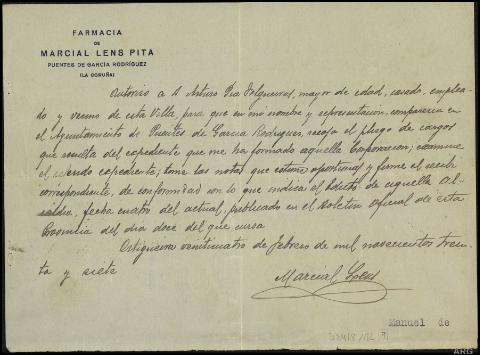 FARMACIA
DE
MARCIAL LENS PITA
PUENTES DE GARCÍA RODRÍGUEZ
(LA CORUÑA)
Autorizo a D. Arturo Pia Folgueiras, mayor de edad, casado, emplea-
do y vecino de esta Villa, para que en mi nombre y representación, comparezca en
el Ayuntamiento de Puentes de Garcia Rodriguez, recoja el pliego de cargos
que resulta del expediente que me ha formado aquella Corporacion; examine
el referido expediente; tome las notas que estime oportunas y firme el recibí
correspondiente, de conformidad con lo que indica el Edicto de aquella Al-
caldia, fecha cuatro del actual, publicado en el Boletin oficial de esta
Provincia del dia doce del que cursa
Ortigueira veinticuatro de febrero de mil novecientos trein-
ta y siete
Marcial Lens
Manuel de
ARG